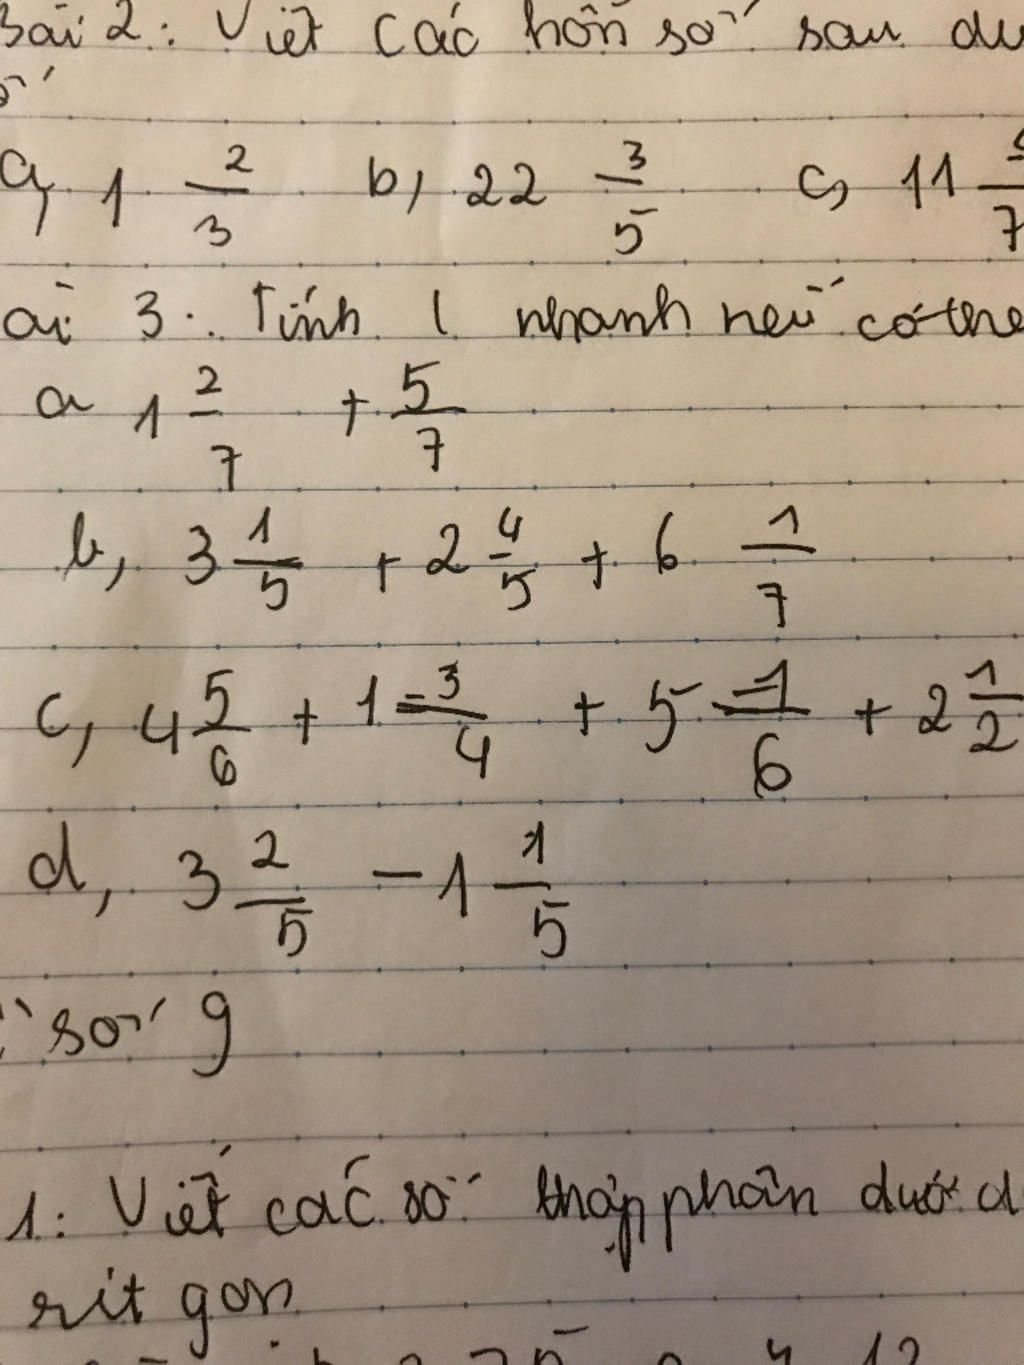 Bài 2: Viết các hỗn số sau dư
số
a, 1 2/3 b, 22 3/5 c, 11 /7
ài 3: Tính ( nhanh nếu có thể
a 1 2/7 + 5/7
b, 3 1/5 + 2 4/5 + 6 1/7
c, 4 5/6 + 1 -3/4 + 5 -1/6 + 2 1/2
d, 3 2/5 - 1 1/5
số 9
1: Viết các số thập phân dưới d
rút gọn